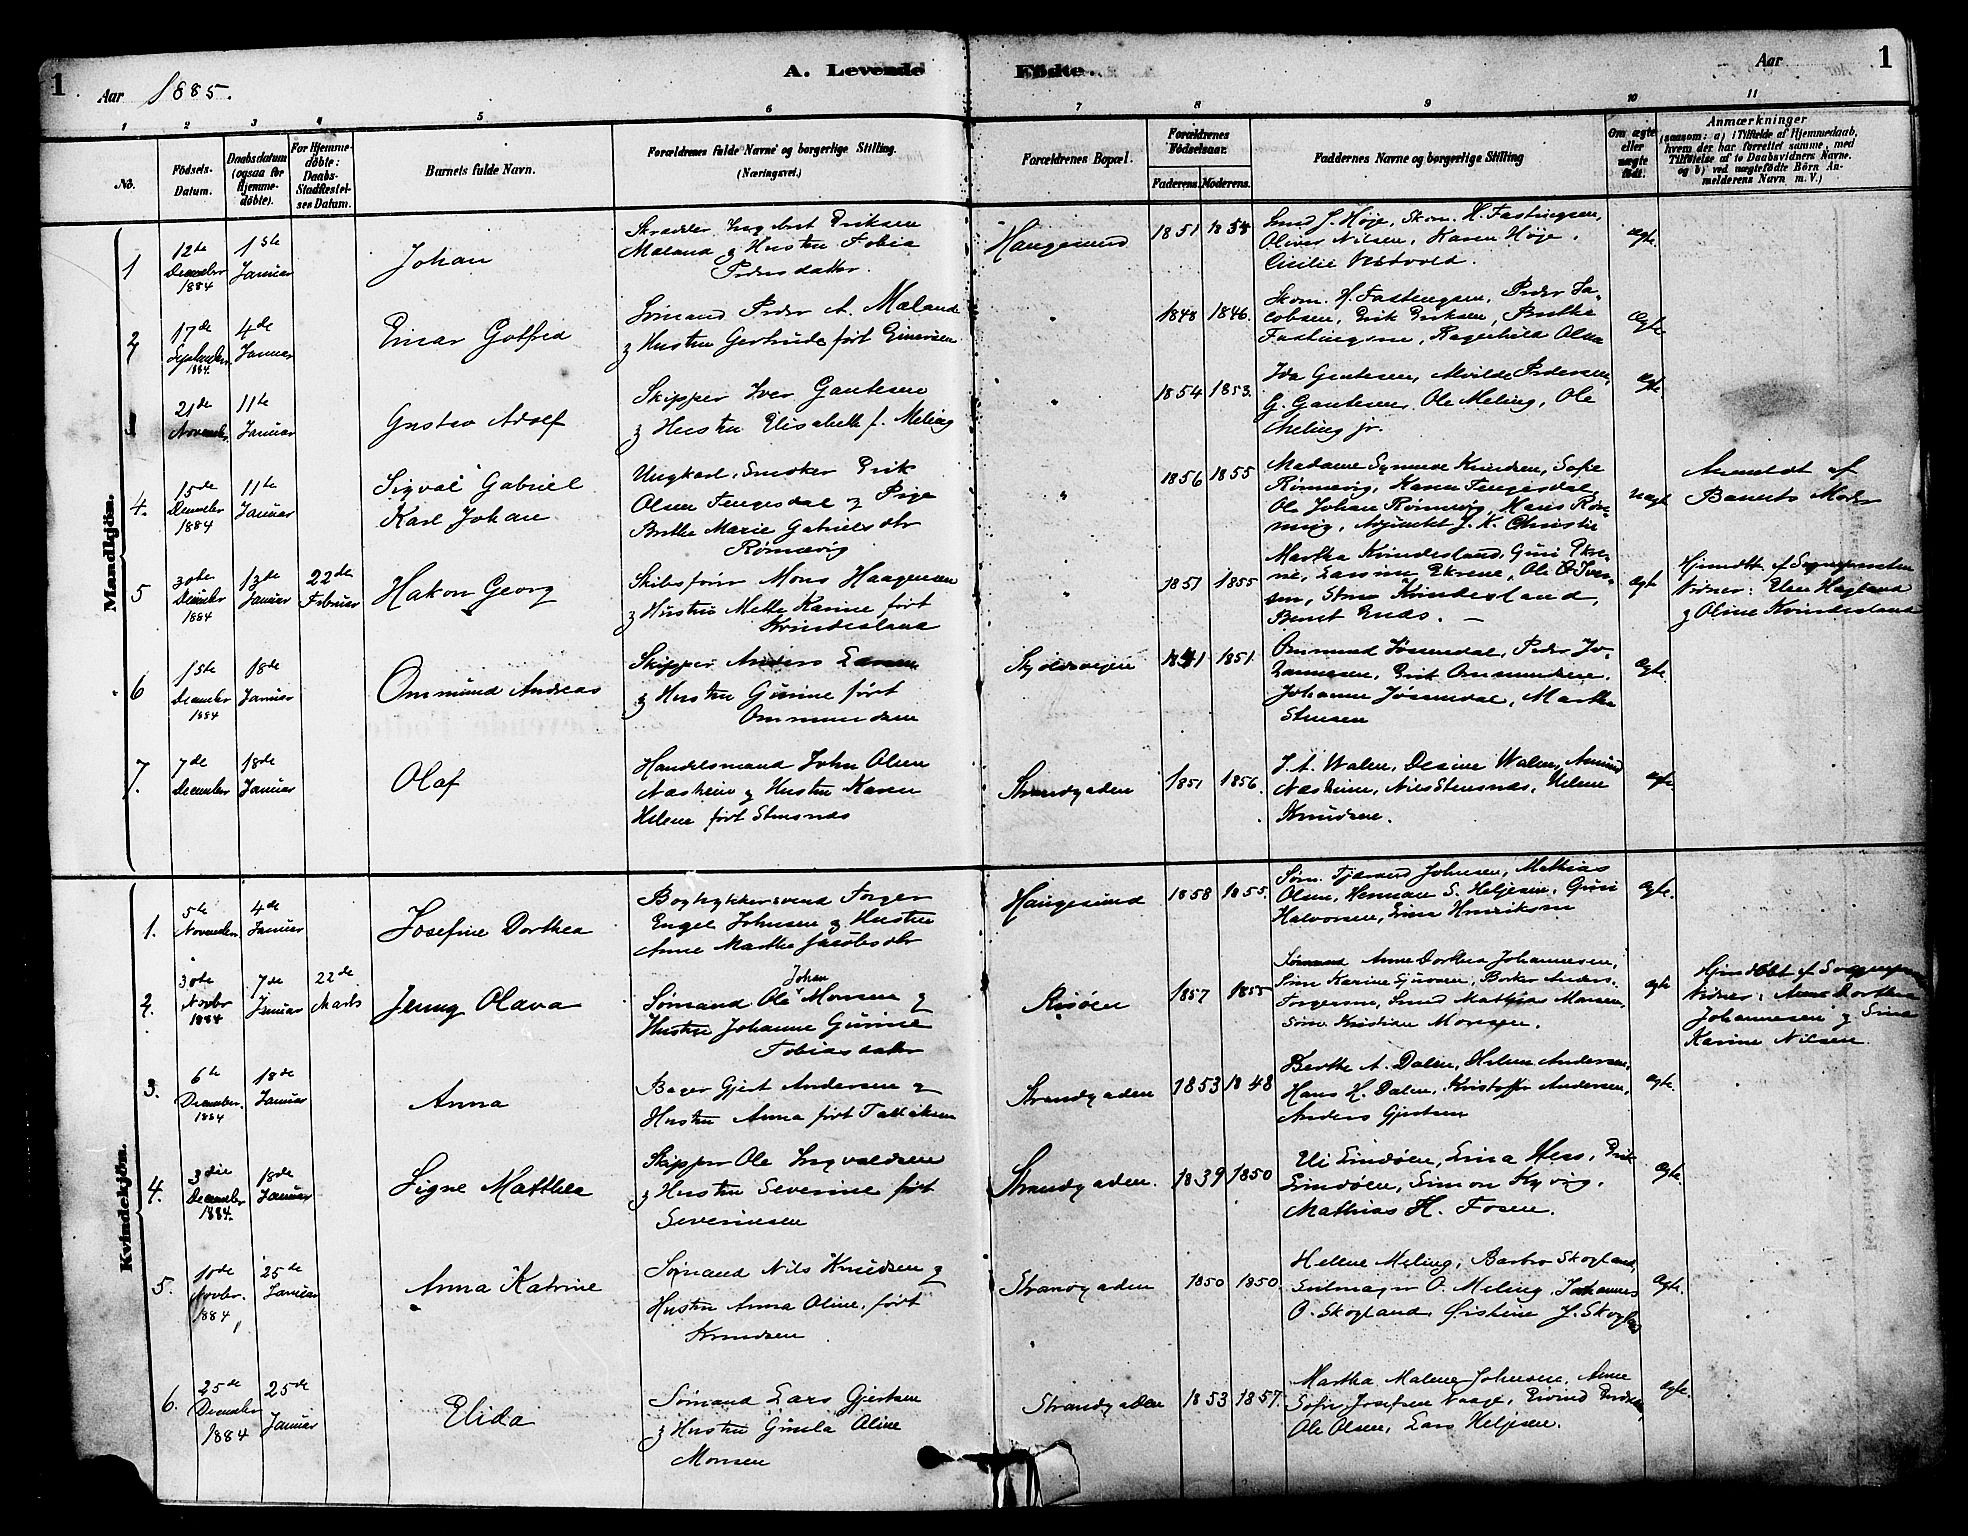 1
Aar 1885.
A. Levende Födte.
Aar
1
1 2 3 4 5 6 7 8 9 10 11
No.
Födsels-Datum.
Daabsdatum (ogsaa for Hjemmedöbte).
For Hjemmedöbte: Daabs-Stadfæstelses Datum.
Barnets fulde Navn.
Forældrenes fulde Navne og borgerlige Stilling.
(Næringsvei.)
Forældrenes Bopæl.
Forældrenes Födselsaar.
Faderens. Moderens.
Faddernes Navne og borgerlige Stilling
Om ægte eller uægte födt.
Anmærkninger
(saasom: a) i Tilfælde af Hjemmedaab, hvem der har forrettet samme, med Tilföielse af to Daabsvidners Navne, og b) ved uægtefödte Börn Anmelderens Navn m. V.)
Mandkjön.
1
12te December 1884
1ste Januar
Johan
Skrædder Ingebret Eriksen
Maland & Hustru Tobia
Pedersdatter.
Haugesund
1851 1854
Smed J. Höje, Skom. H. Fastingsen,
Oliver Nilsen, Karen Höje,
Cicilie Vestvold.
ægte
2
17de September 1884.
4de Januar
Einar Gotfred
Sömand Peder A. Maland
& Hustru Gertrude födt Einersen
"
1848 1846.
Skom. H. Fastingsen, Peder Ja-
cobsen, Erik Eriksen, Berthe
Fastingsen, Ragnhild Olsen
ægte
3
21de November
11te Januar
Gustav Adolf
Skipper Iver Gautesen
& Hustru Elisabeth f. Meling
"
1854 1853.
Ida Gautesen, Mvilde Pedersen,
G. Gautesen, Ole Meling, Ole
Meling jr.
ægte
4.
15de December 1884
11te Januar
Sigval Gabriel
Karl Johan
Ungkarl, Snedker Erik
Olsen Fengesdal & Pige
Berthe Marie Gabrielsdtr
Rönnevig
"
1856 1855
Madame Synneve Knudsen, Sofie
Rönnevig, Karen Fengesdal,
Ole Johan Rönnevig, Hans Rön-
nevig, Adjunkt J. K. Christie
uægte
Anmeldt af
Barnets Moder
5
30te December 1884
13de Januar
22de Februar
Hakon Georg
Skibsförer Mons Haagensen
& Hustru Mette Karine födt
Kvindesland
"
1851 1855
Martha Kvindesland, Guri Ekre-
ne, Larsine Ekrene, Ole O. Iver-
sen, Sten Kvindesland,
Berent Ends.
ægte
Hjemdt. af Sognepresten
Vidner: Elen Hagland
& Oline Kvindesland
6
15de December 1884
18de Januar
Ommund Andreas
Skipper Anders Larsen
& Hustru Gurine födt
Ommundsen
Skjoldavejen
1841 1851.
Ommund Jösendal, Peder Jo-
hannesen, Erik Ommundsen,
Johanne Jösendal, Martha
Stensen
ægte.
7.
7de December
18de Januar
Olaf
Handelsmand John Olsen
Næsheim & Hustru Karen
Helene födt Stensnæs
Strandgaden
1851 1856.
J. A. Walen, Desine Walen, Amund
Næsheim, Nils Stensnæs, Helene
Knudsen.
ægte
Kvindekjön.
1.
5te November
4de Januar
Josefine Dorthea
Bogtrykkersvend Torger
Engel Johnsen & Hustru
Anne Marthe Jacobsdtr
Haugesund
1858 1855.
Söm. Tjerand Johnsen, Mathias
Olsen, Herman S. Heljesen, Guri
Halvorsen, Lina Henriksen
ægte.
2.
30te Novbr 1884
7de Januar
22de Marts
Jenny Olava
Sömand Ole Johan Monsen &
Hustru Johanne Gurine
Tobiasdatter
Risöen
1857 1855
Anne Dorthea Johannesen,
Sine Karine Sjursen, Anders
Torgersen, Smed Mathias Monsen,
Söm. Kristian Monsen.
ægte
Hjemdöbt af Sognepr.
Vidner: Anne Dorthea
Johannesen & Sine
Karine Nilsen
3.
6te December. 1884
18de Januar
Anna
Bager Gjert Andersen &
Hustru Anna födt Tallaksen
Strandgaden
1853 1848
Berthe A. Dalen, Helene Andersen,
Hans H. Dalen, Kristoffer Andersen,
Anders Gjertsen
ægte.
4.
3die December 1884.
18de Januar
Signe Mathea
Skipper Ole Ingvaldsen
& Hustru Severine födt
Severinsen
Strandgaden.
1839 1850
Lindöen, Lina Hess, Erik
Lindöen, Simon Kyvig,
Mathias H. Fosen.
ægte.
5.
10de Novbr. 1884
25de Januar
Anna Katrine
Sömand Nils Knudsen &
Hustru Anna Oline, födt
Knudsen
Strandgaden
1850 1850.
Helene Meling, Barbro Skogland,
Seilmager O. Meling, Johannes
O. Skogland, Kristine J. Skogland
ægte.
6.
25de December 1884
25de Januar
Elida
Sömand Lars Gjertsen
& Hustru Gunla Oline
Monsen
Strandgaden
1853 1857.
Martha Malene Johnsen, Anne
Sofie Josefine Vaage, Eivind Endresen,
Ole Olsen, Lars Heljesen.
ægte.